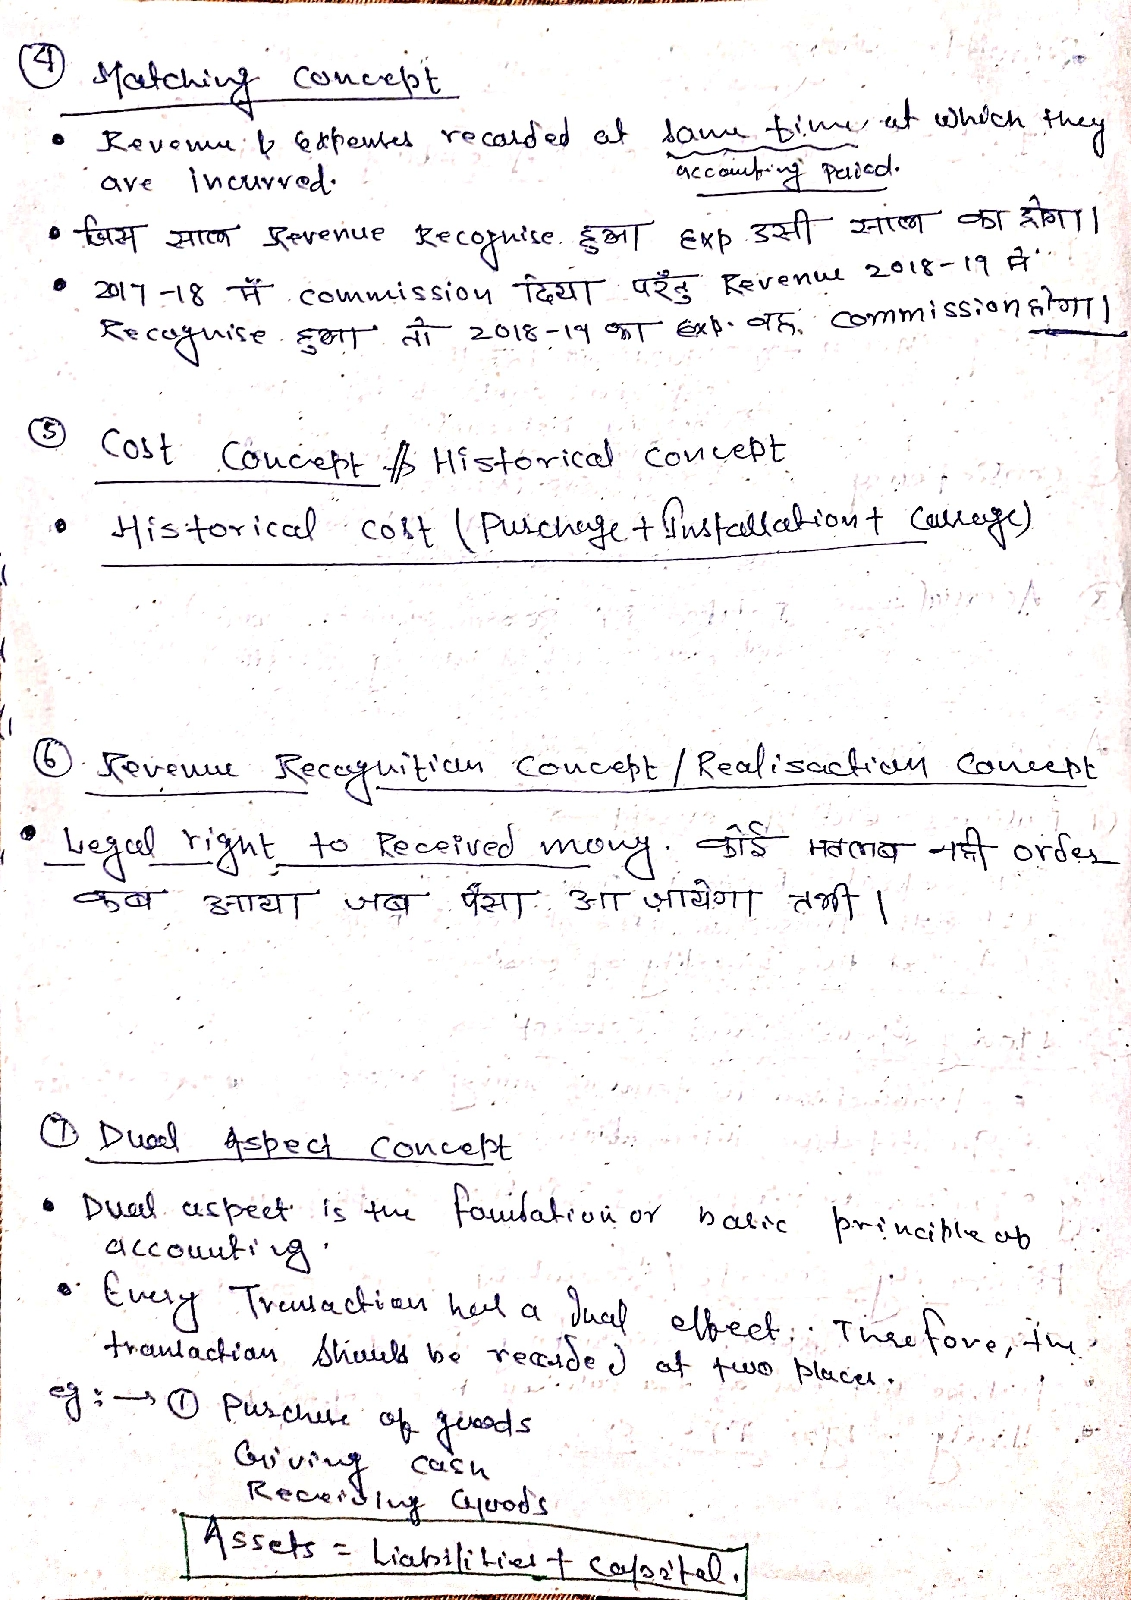 ④ Matching concept
• Revenue & Expenses recorded at same time at which they
accounting period.
are incurred.
• जिस साल Revenue Recognise हुआ Exp उसी साल का होगा।
• 2017-18 में commission दिया परंतु Revenue 2018-19 में
Recognise हुआ तो 2018-19 का Exp. वह commission होगा।
⑤ Cost Concept / Historical concept
• Historical cost (Purchage + Installation + Carrage)
⑥ Revenue Recognition Concept / Realisaction Concept
• Legal right to Received mony. कोई मतलब नहीं order
कब आया जब पैसा आ जायेगा तभी।
⑦ Dual Aspect Concept
• Dual aspect is the foundation or basic principle of
accounting.
• Every Transaction has a dual effect. Therefore, the
transaction should be recorded at two places.
eg: → ① Purchase of goods
Giving cash
Receiving Goods
Assets = Liabilities + capital.